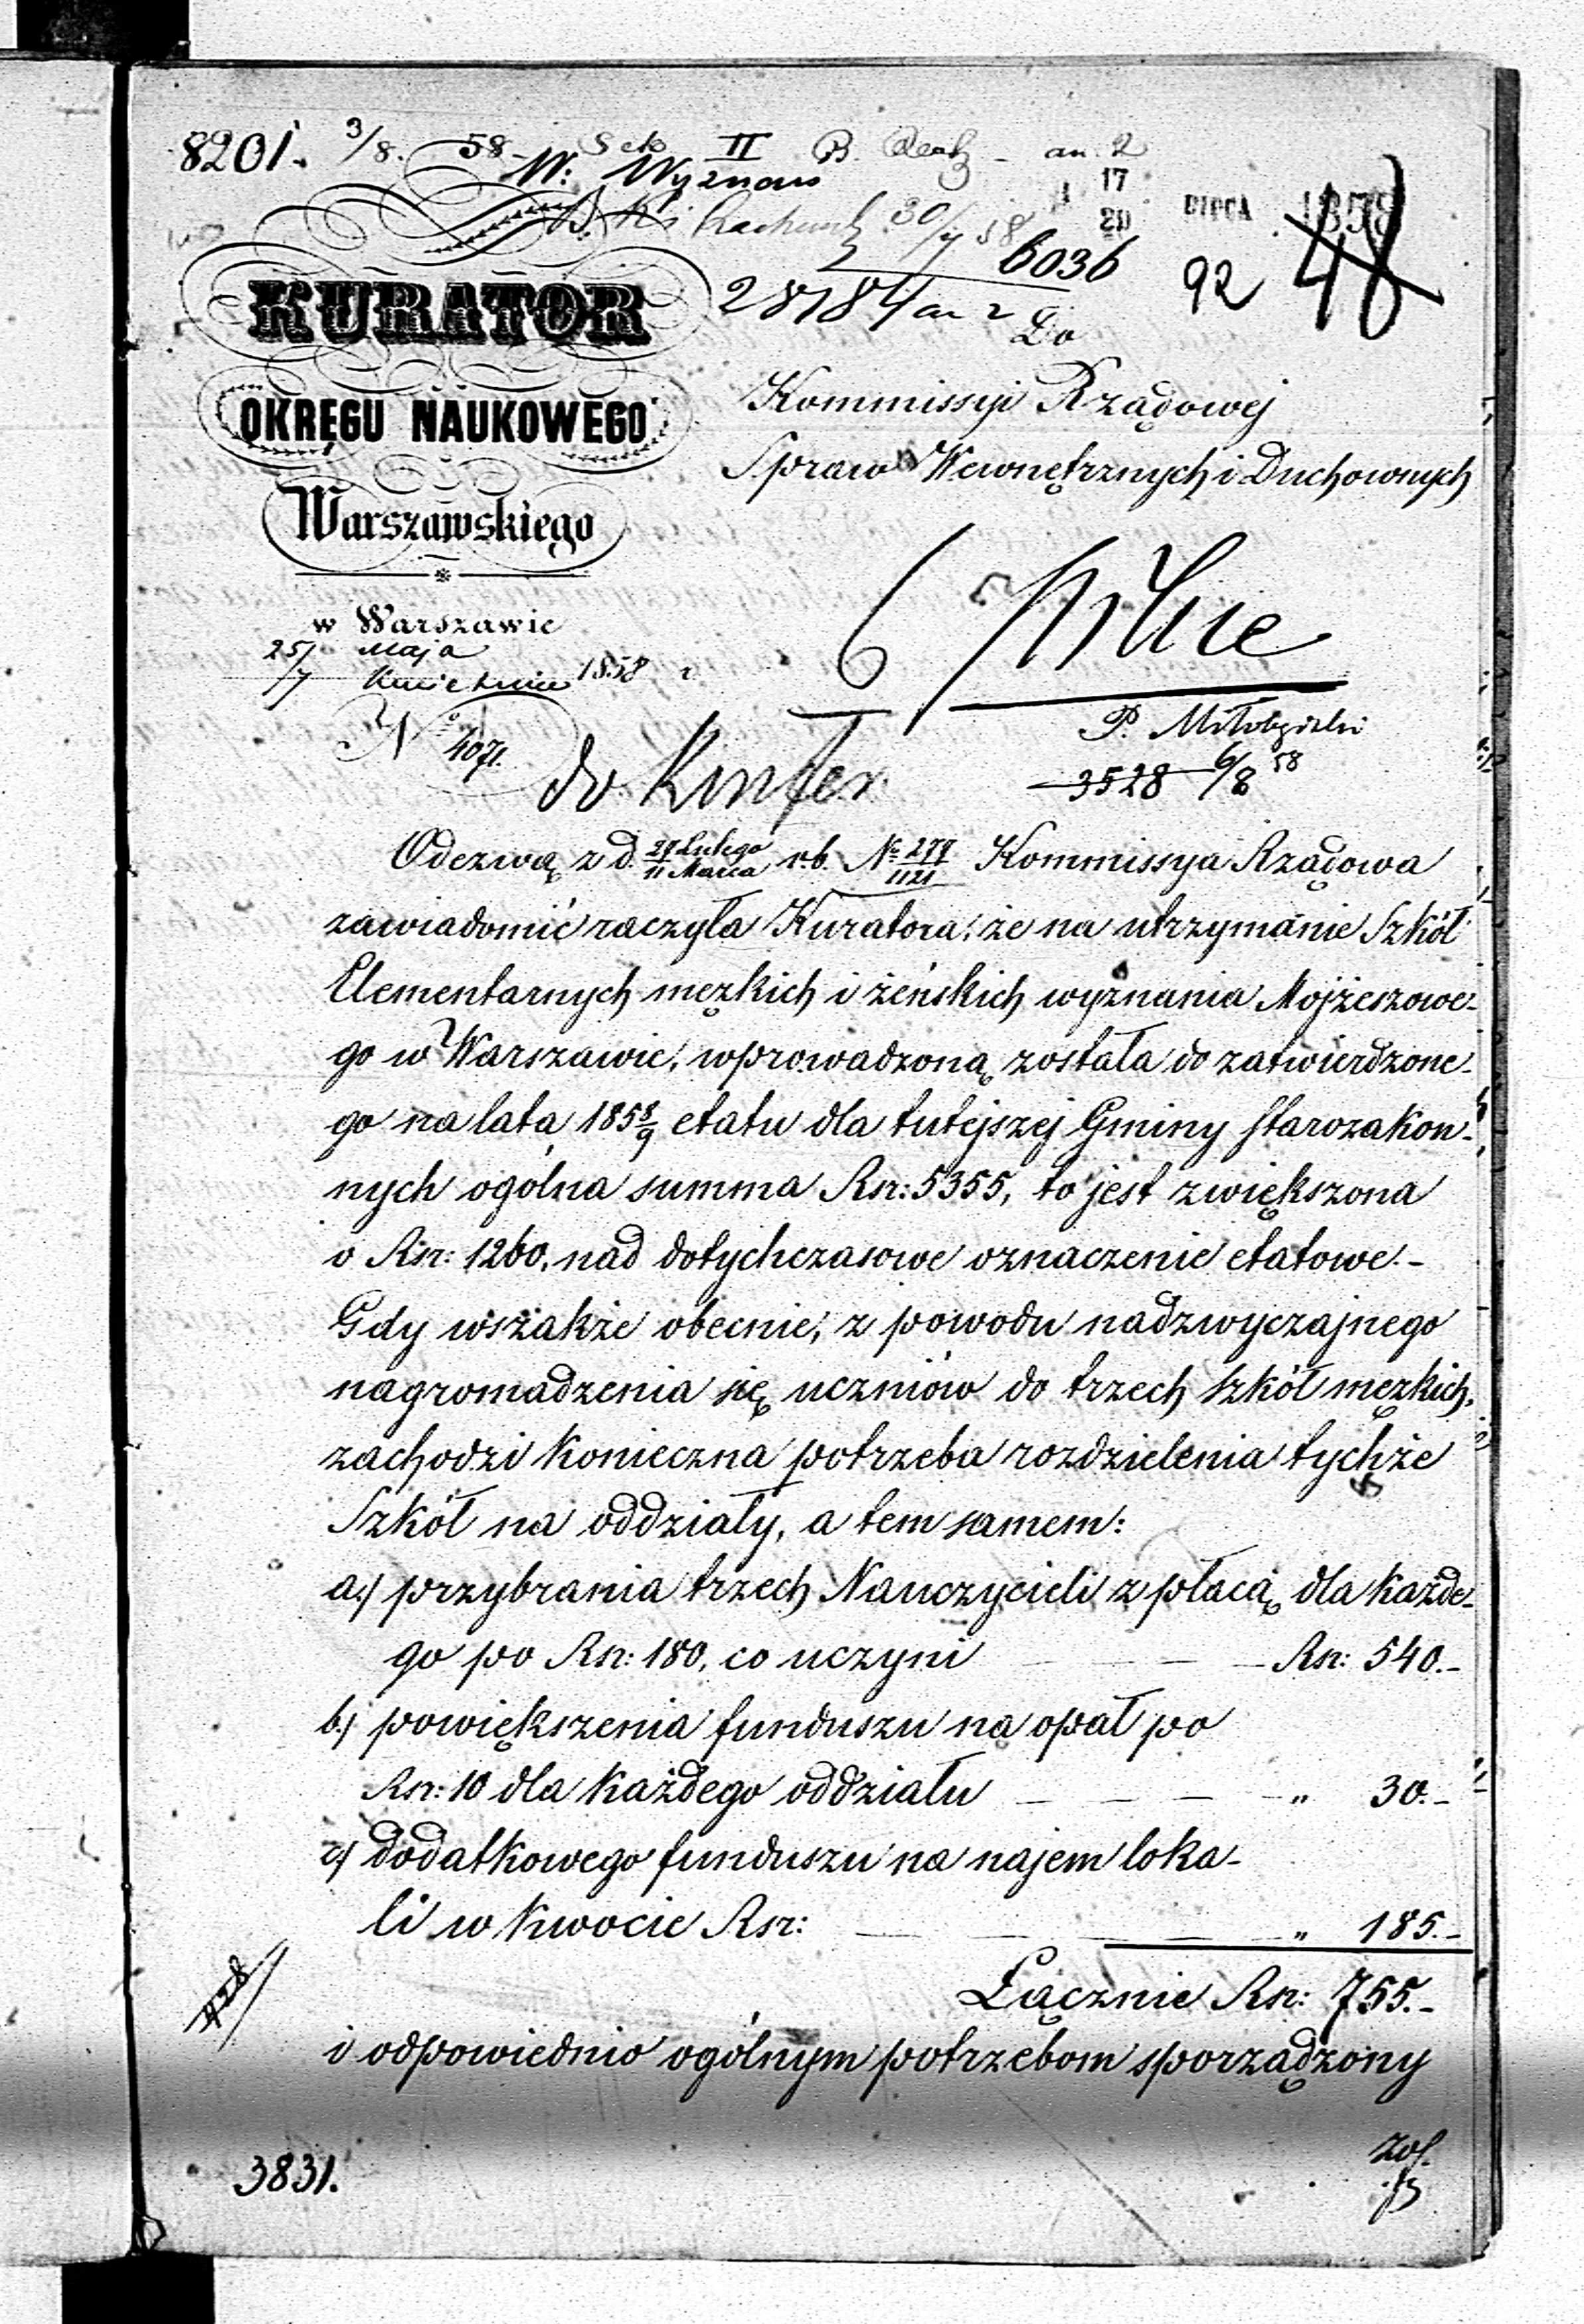 8201. 3/8. 58 Sek II B. an. 2
W: Wyznań
17
29 LIPCA 1858
30/7 58
6036
92 48
28784 an 2
KURATOR
OKRĘGU NAUKOWEGO
Warszawskiego
Do
Kommissyi Rządowej
Spraw Wewnętrznych i Duchownych
w Warszawie
25/7 Maja
1858 r
No 4071.
Pilne
P. Miłobędzki
3528 6/8 58
do
Odezwą z d. 27 Lutego / 11 Marca r.b. No 277/1121 Kommissya Rządowa
zawiadomić raczyła Kuratora, że na utrzymanie Szkół
Elementarnych męzkich i żeńskich wyznania Mojżeszowe-
go w Warszawie, wprowadzoną została do zatwierdzone-
go na lata 185 8/9 etatu dla tutejszej Gminy Starozakon-
nych ogólna summa Rsr: 5355, to jest zwiększona
o Rsr: 1260, nad dotychczasowe oznaczenie etatowe.-
Gdy wszakże obecnie, z powodu nadzwyczajnego
nagromadzenia się uczniów do trzech szkół męzkich,
zachodzi konieczna potrzeba rozdzielenia tychże
Szkół na oddziały, a tem samem:
a.) przybrania trzech Nauczycieli z płacą dla każde-
go po Rsr: 180, co uczyni — — — Rsr: 540.-
b.) powiększenia funduszu na opał po
Rsr: 10 dla każdego oddziału — — — " 30.-
c) dodatkowego funduszu na najem loka-
li w kwocie Rsr: — — — " 185.-
Łącznie Rsr: 755.-
i odpowiednio ogólnym potrzebom sporządzony
3831.